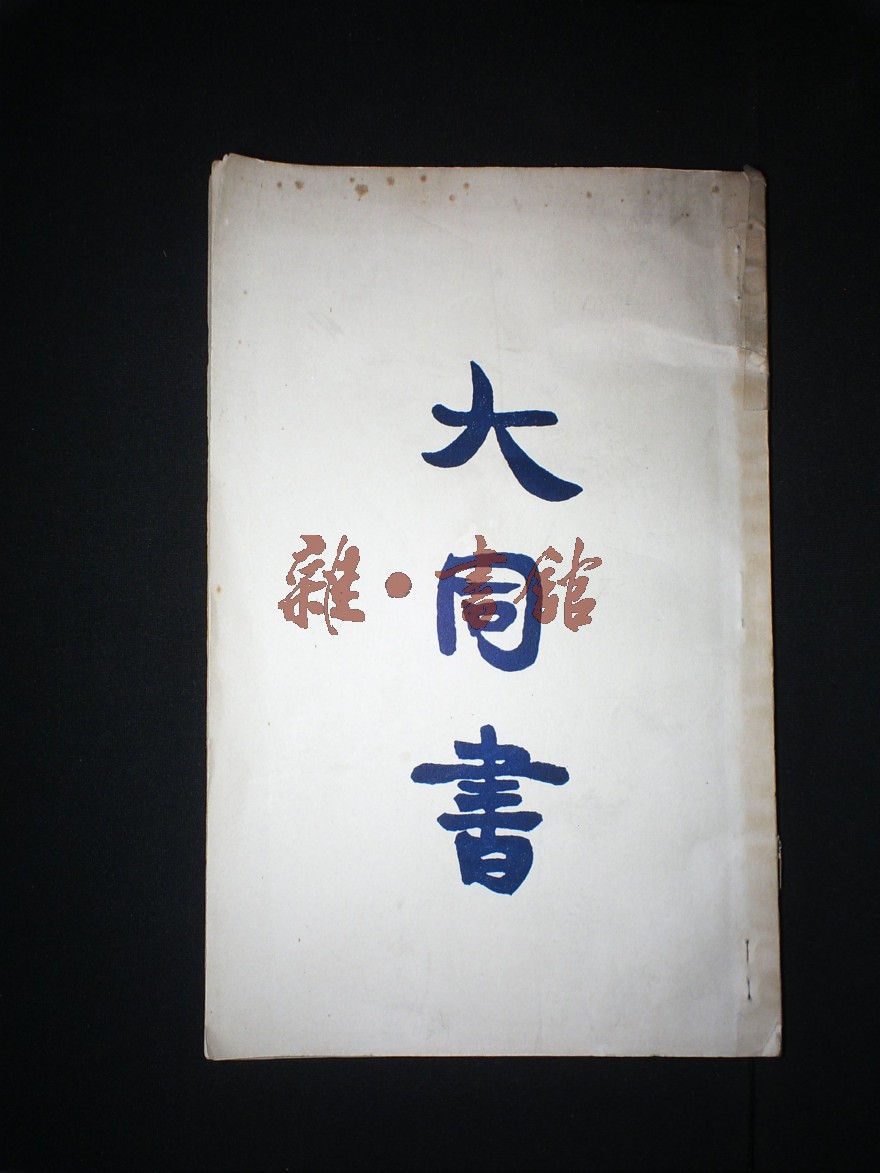 大同書
雜·書館